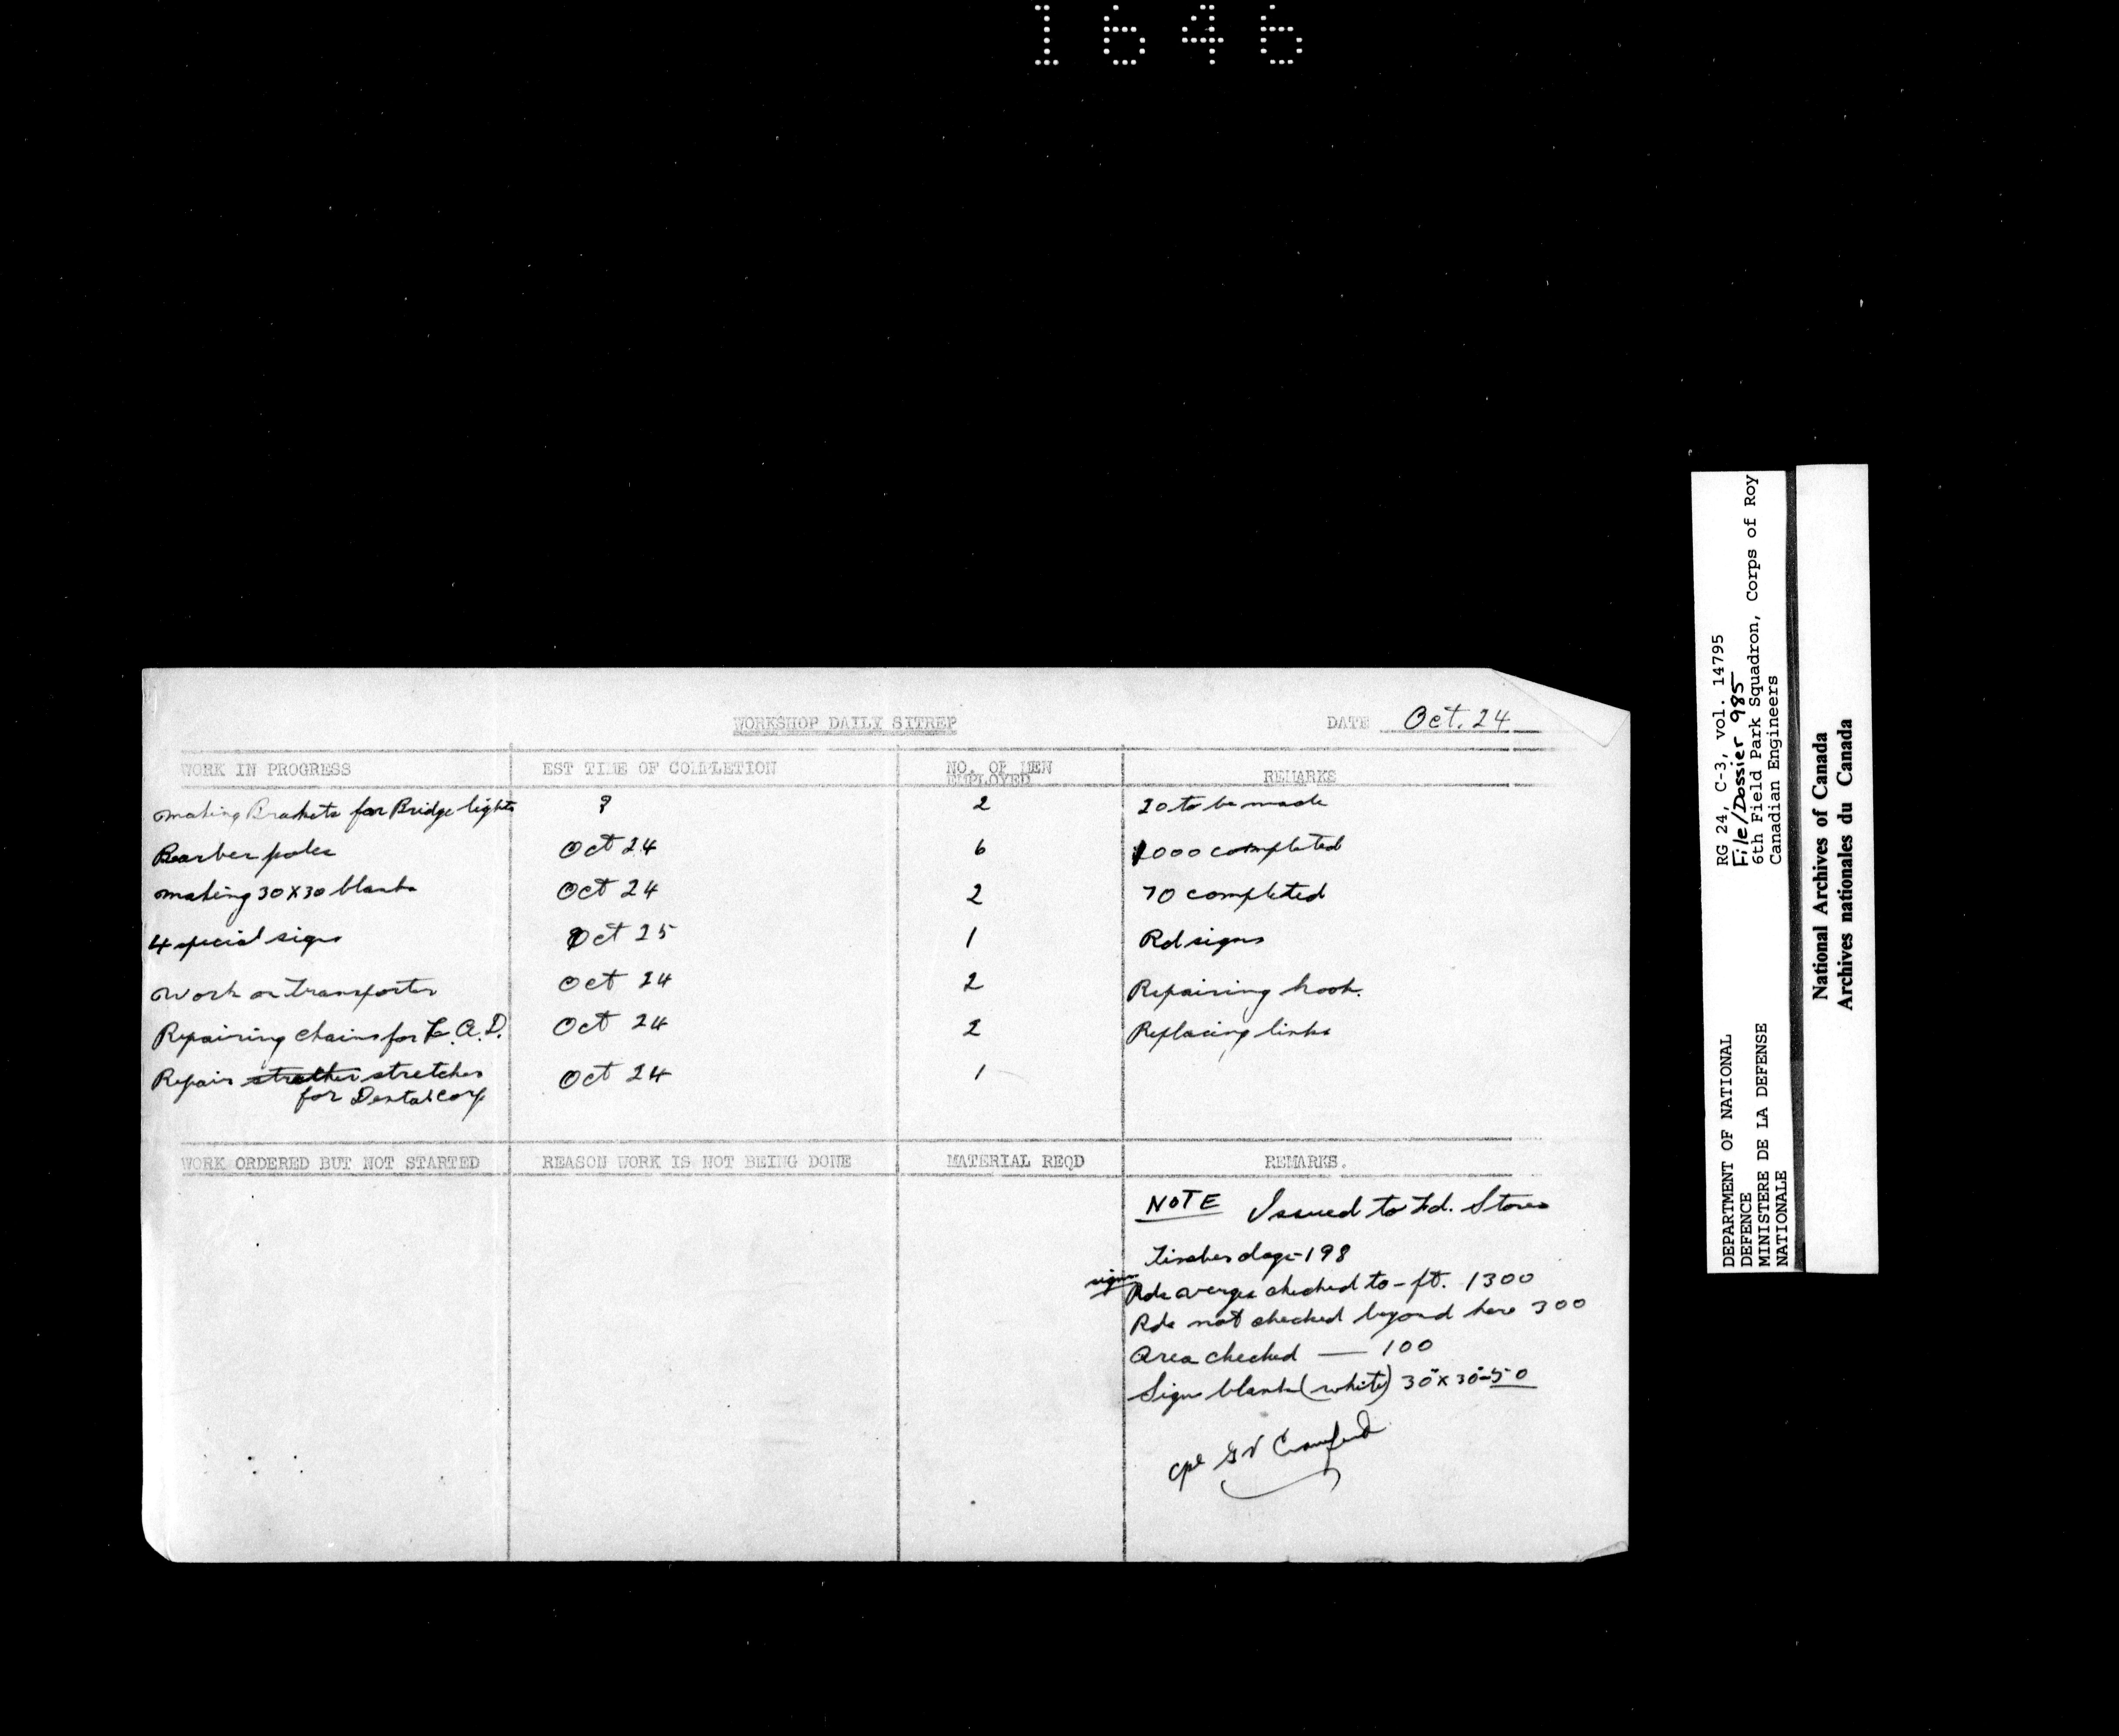 1646
WORKSHOP DAILY SITREP DATE Oct. 24
WORK IN PROGRESS EST TIME OF COMPLETION NO. OF MEN EMPLOYED REMARKS
making Brackets for Bridge lights ? 2 20 to be made
Barber poles Oct 24 6 1000 completed
making 30X30 blanks Oct 24 2 70 completed
4 special signs Oct 25 1 Rd signs
Work on Transporter Oct 24 2 Repairing hook.
Repairing chains for L.A.D. Oct 24 2 Replacing links
Repair stretcher Oct 24 1
for Dental Corp
WORK ORDERED BUT NOT STARTED REASON WORK IS NOT BEING DONE MATERIAL REQD REMARKS.
NOTE Issued to Fd. Stores
198
signs
Rds verges checked to - ft. 1300
Rds not checked beyond here 300
Area checked — 100
Sign blank (white) 30"x30"-50
Cpl Crawford
RG 24, C-3, vol. 14795
File/Dossier 985
6th Field Park Squadron, Corps of Roy
Canadian Engineers
DEPARTMENT OF NATIONAL
DEFENCE
MINISTERE DE LA DEFENSE
NATIONALE
National Archives of Canada
Archives nationales du Canada